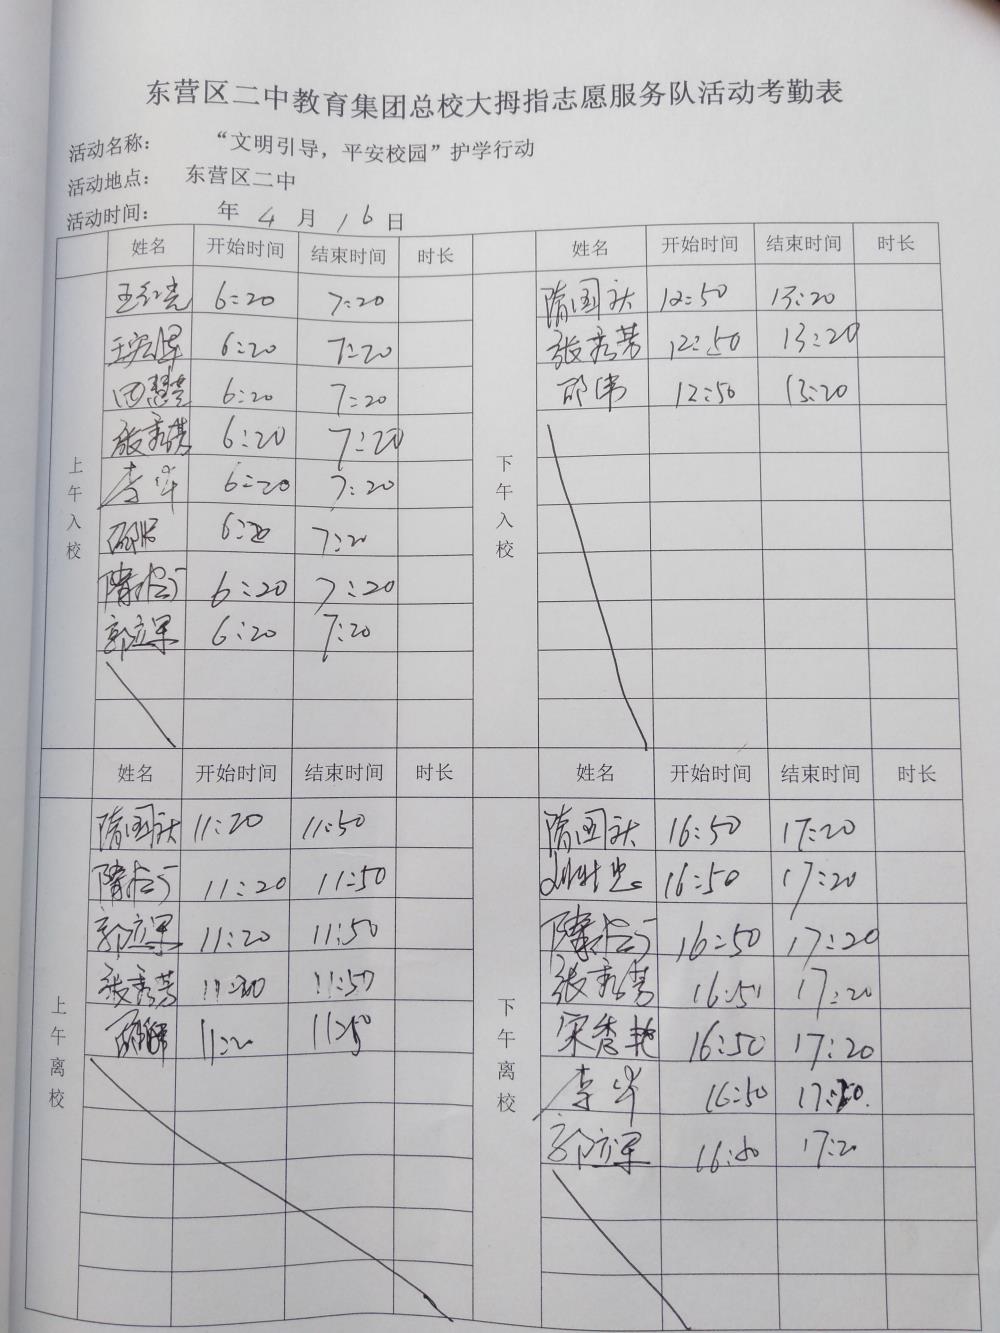 东营区二中教育集团总校大拇指志愿服务队活动考勤表
活动名称： “文明引导，平安校园”护学行动
活动地点： 东营区二中
活动时间： 年 4 月 16 日
姓名 开始时间 结束时间 时长 姓名 开始时间 结束时间 时长
上午入校
王红亮 6:20 7:20
6:20 7:20
田慧芸 6:20 7:20
张秀芳 6:20 7:20
李华 6:20 7:20
6:20 7:20
6:20 7:20
郭立军 6:20 7:20
下午入校
隋国跃 12:50 13:20
张秀芳 12:50 13:20
邵伟 12:50 13:20
姓名 开始时间 结束时间 时长 姓名 开始时间 结束时间 时长
上午离校
隋国跃 11:20 11:50
11:20 11:50
郭立军 11:20 11:50
张秀芳 11:20 11:50
11:20 11:50
下午离校
隋国跃 16:50 17:20
16:50 17:20
16:50 17:20
张秀芳 16:50 17:20
宋秀艳 16:50 17:20
李华 16:50 17:20
郭立军 16:50 17:20